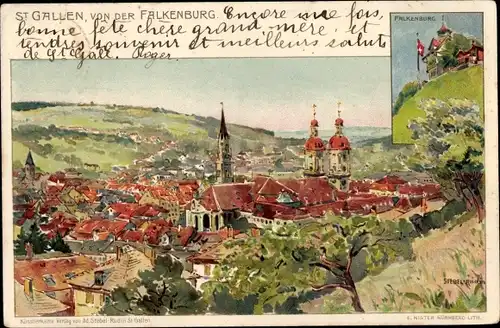 ST GALLEN, VON DER FALKENBURG. Encore une fois,
bonne fête chère grand, mère, et
tendres souvenir et meilleurs saluts
de St Gall. Roger.
FALKENBURG
Künstlerkarte Verlag von Ad. Ströbel-Rudin, St. Gallen.
E. NISTER NÜRNBERG LITH.